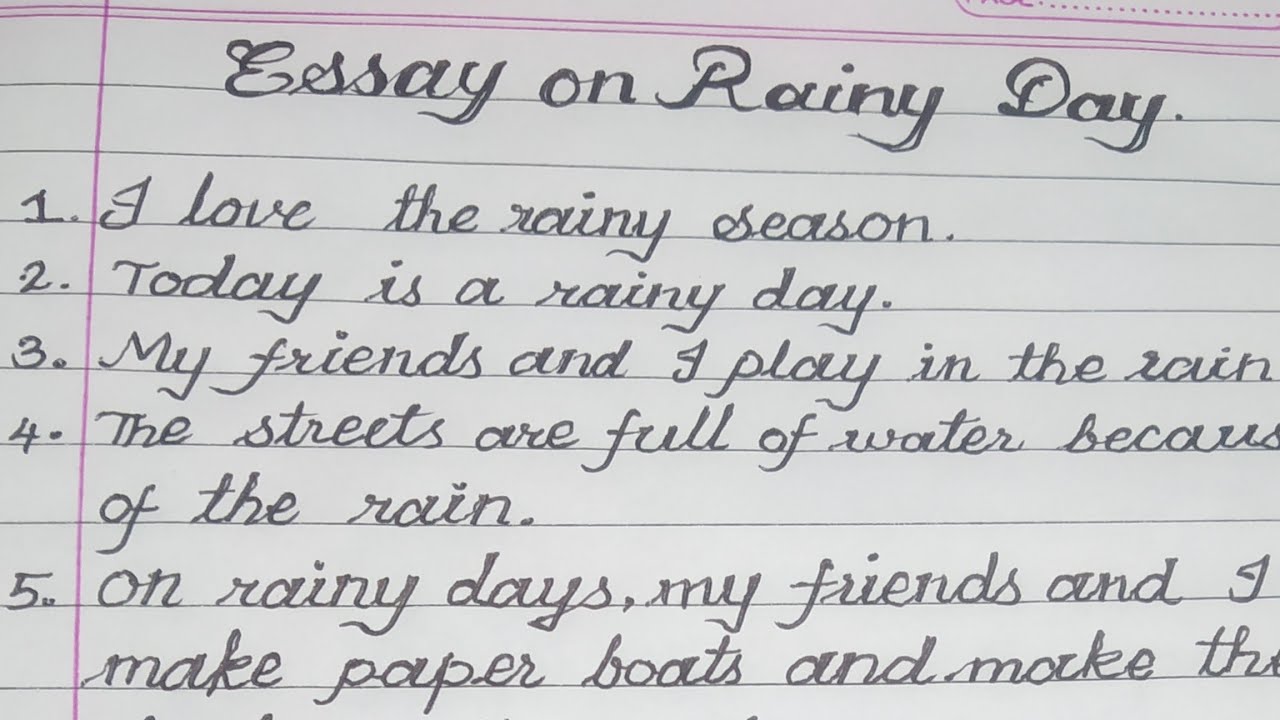 Essay on Rainy Day.
1. I love the rainy season.
2. Today is a rainy day.
3. My friends and I play in the rain
4. The streets are full of water becaus
of the rain.
5. On rainy days, my friends and I
make paper boats and make the